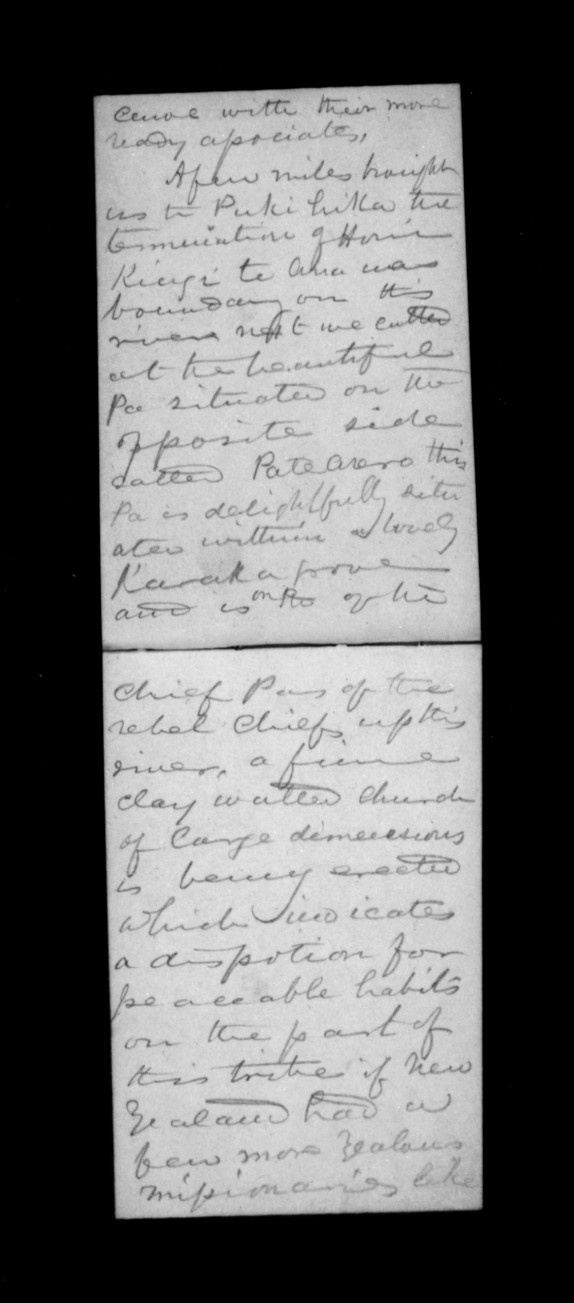 canoe with their more
ready associates,
A few miles brought
us to Puki hika the
termination of Honi
Kingi te Ana uas
boundary on this
river next we called
at the beautiful
Pa situated on the
opposite side
called Patearero this
Pa is delightfully situ
ated within a lovely
Karaka grove
and is one of the
Chief Pas of the
rebel Chiefs up this
river, a fine
clay walled Church
of large dimensions
is being erected
which indicates
a dispotion for
peaceable habits
on the part of
this tribe if New
Zealand had a
few more Zealous
missionaries like